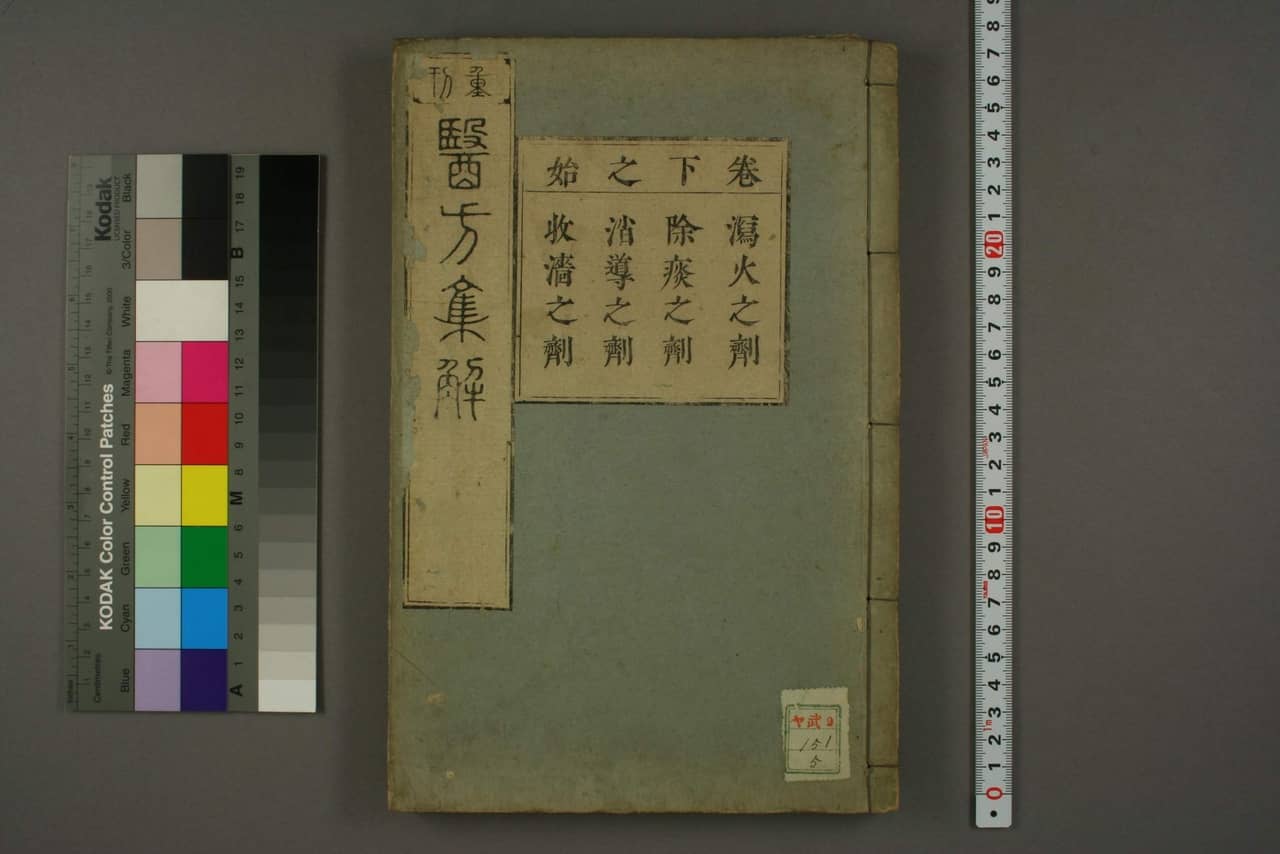 重刊
醫方集解
卷下之始
瀉火之劑
除痰之劑
消導之劑
收濇之劑
ヤ武9
151
5
KODAK Color Control Patches
Kodak
LICENSED PRODUCT
© The Tiffen Company, 2000
Centimetres
Blue
Cyan
Green
Yellow
Red
Magenta
White
3/Color
Black
A 1 2 3 4 5 6 M 8 9 10 11 12 13 14 15 B 17 18 19
0 1 2 3 4 5 6 7 8 9 10 1 2 3 4 5 6 7 8 9 20 1 2 3 4 5 6 7 8 9
1m